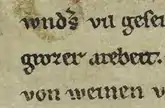 wnds vil gesei
grozer arebeit.
von weinen v